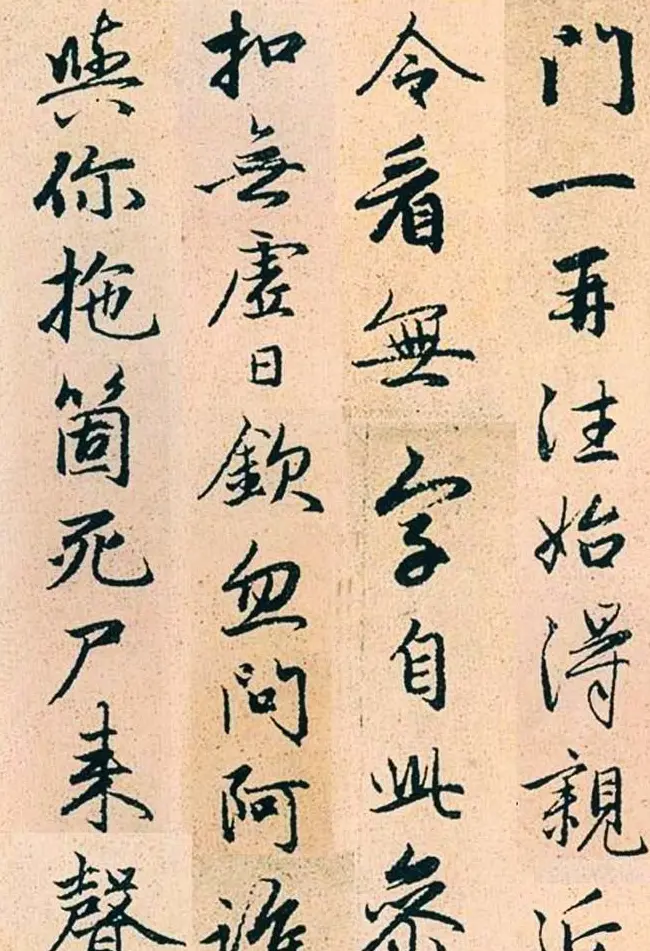 門一再往始得親近
令看無字自此叅
扣無虛日欽忽問阿誰
與你拖箇死尸来聲